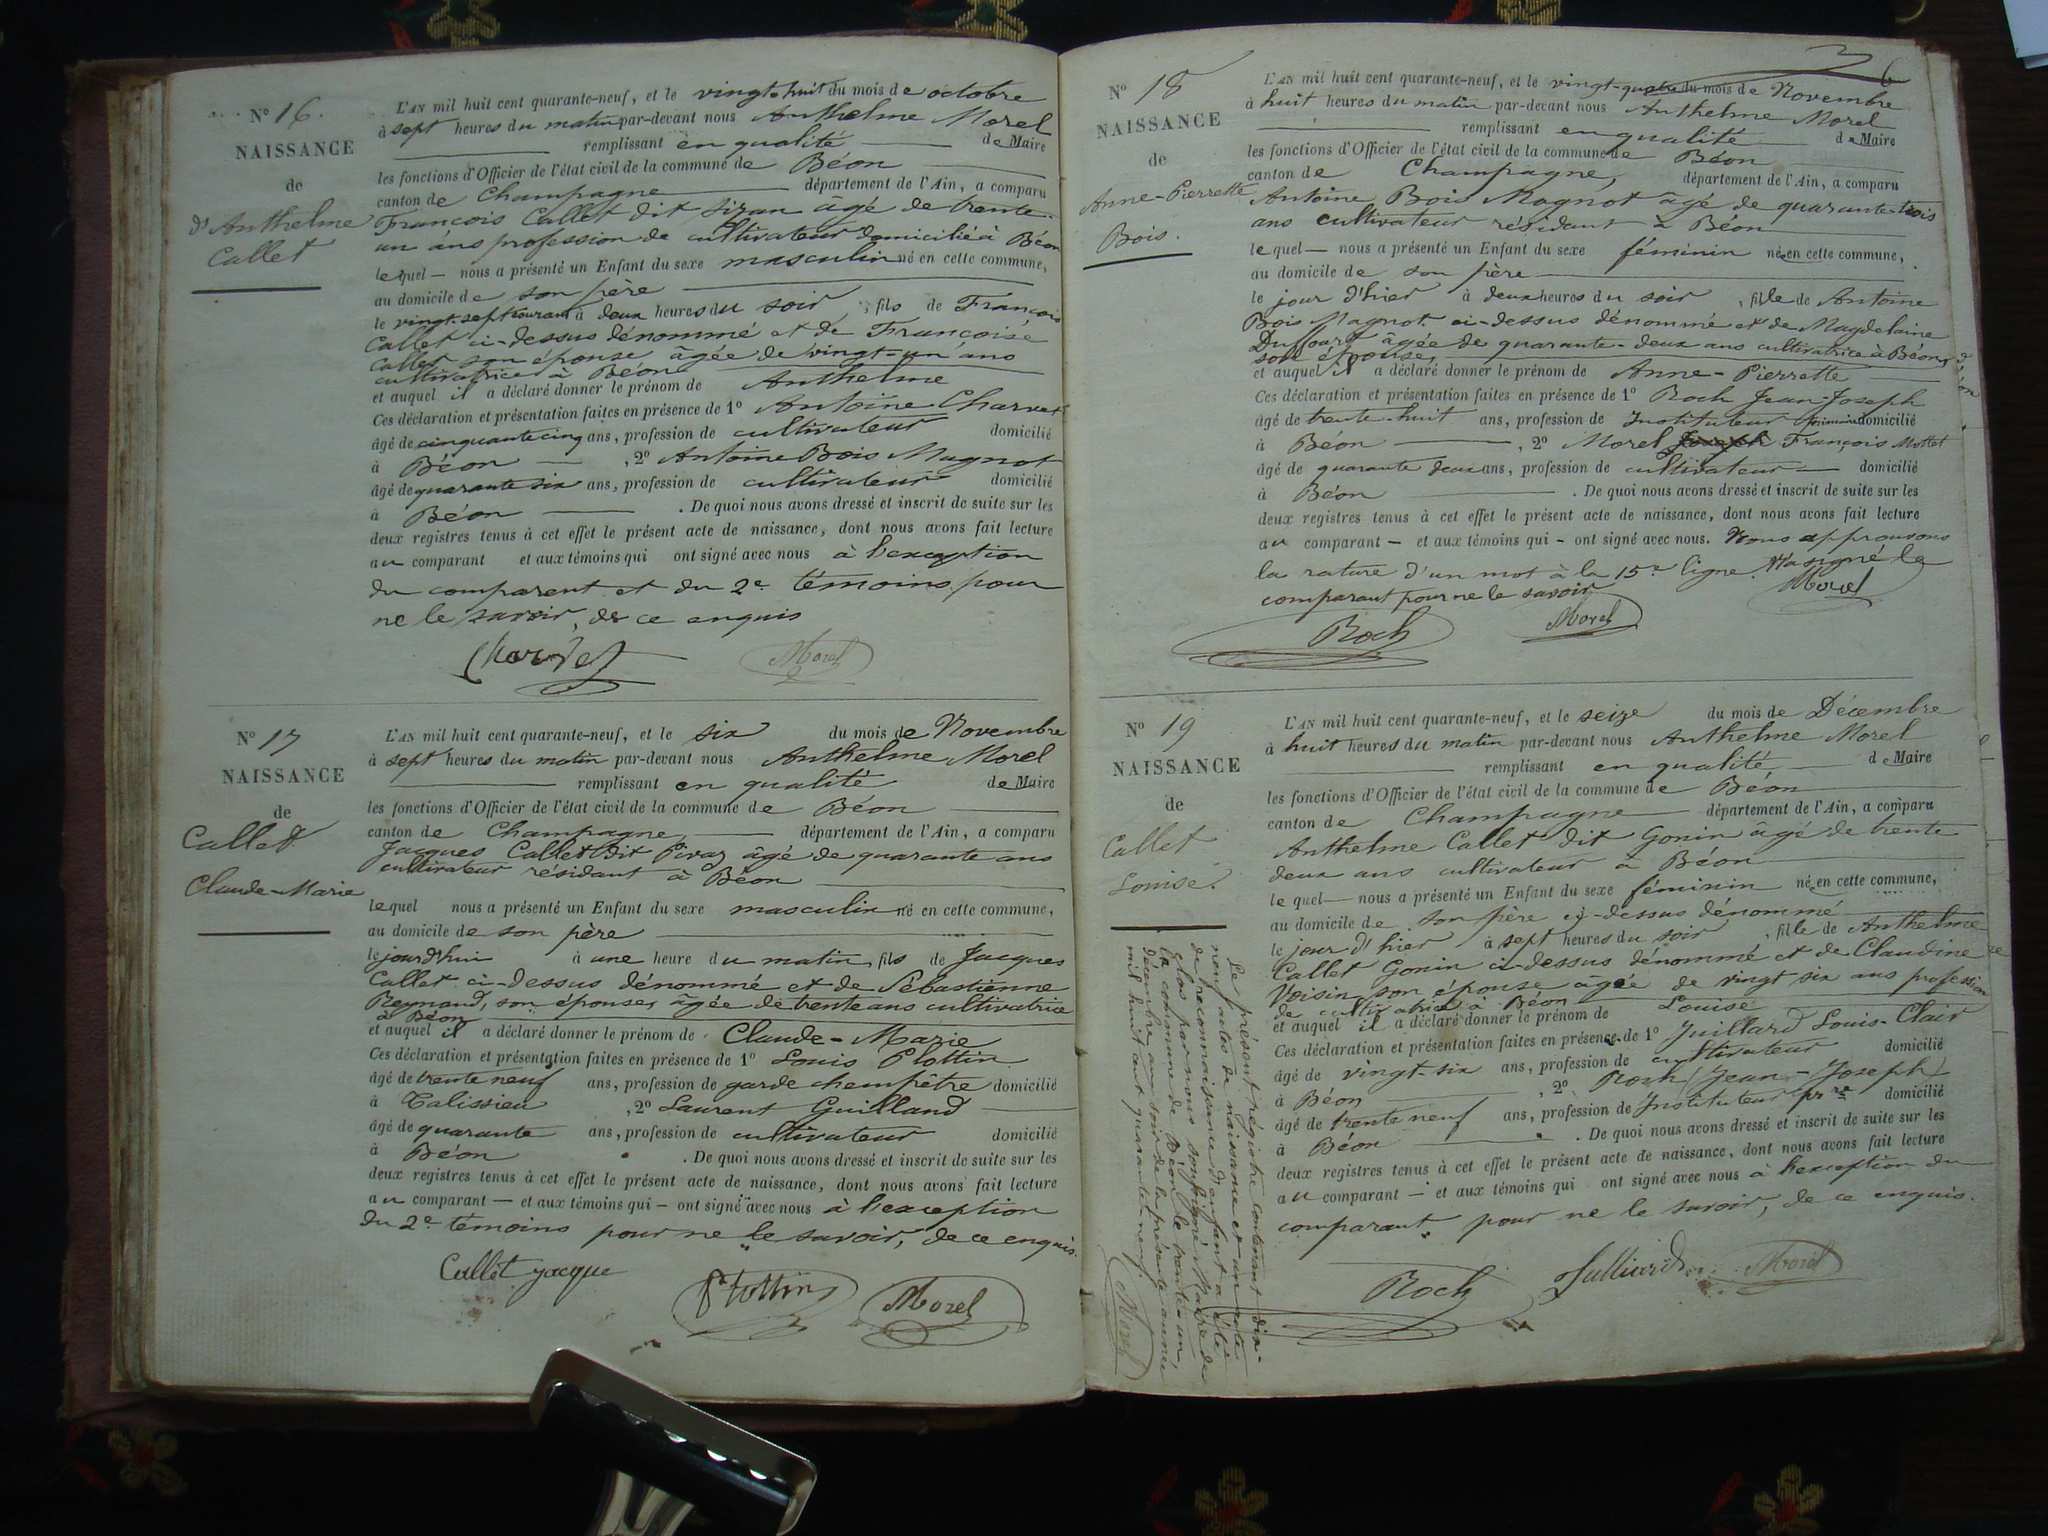 N° 16.
NAISSANCE
de
d'Anthelme
Callet
L'AN mil huit cent quarante-neuf, et le vingt-huit du mois de octobre
à sept heures du matin par-devant nous Anthelme Morel
remplissant en qualité de Maire
les fonctions d'Officier de l'état civil de la commune de Béon
canton de Champagne département de l'Ain, a comparu
François Callet dit Sizan âgé de trente
un ans profession de cultivateur domicilié à Béon
lequel nous a présenté un Enfant du sexe masculin né en cette commune,
au domicile de son père
le vingt-sept courant à deux heures du soir, fils de François
Callet ci-dessus dénommé et de Françoise
Callet son épouse âgée de vingt-un ans
cultivatrice à Béon
et auquel il a déclaré donner le prénom de Anthelme
Ces déclaration et présentation faites en présence de 1° Antoine Charvet
âgé de cinquante cinq ans, profession de cultivateur domicilié
à Béon , 2° Antoine Bois Magnot
âgé de quarante six ans, profession de cultivateur domicilié
à Béon . De quoi nous avons dressé et inscrit de suite sur les
deux registres tenus à cet effet le présent acte de naissance, dont nous avons fait lecture
au comparant et aux témoins qui ont signé avec nous à l'exception
du comparent et du 2e témoins pour
ne le savoir, de ce enquis
Charvet Morel
N° 17
NAISSANCE
de
Callet
Claude-Marie
L'AN mil huit cent quarante-neuf, et le six du mois de Novembre
à sept heures du matin par-devant nous Anthelme Morel
remplissant en qualité de Maire
les fonctions d'Officier de l'état civil de la commune de Béon
canton de Champagne département de l'Ain, a comparu
Jacques Callet dit Pivaz âgé de quarante ans
cultivateur résidant à Béon
lequel nous a présenté un Enfant du sexe masculin né en cette commune,
au domicile de son père
le jourd'hui à une heure du matin, fils de Jacques
Callet ci-dessus dénommé et de Sébastienne
Reynaud, son épouse, âgée de trente ans cultivatrice
à Béon
et auquel il a déclaré donner le prénom de Claude-Marie
Ces déclaration et présentation faites en présence de 1° Louis Plottin
âgé de trente neuf ans, profession de garde champêtre domicilié
à Talissieu , 2° Laurent Guilland
âgé de quarante ans, profession de cultivateur domicilié
à Béon . De quoi nous avons dressé et inscrit de suite sur les
deux registres tenus à cet effet le présent acte de naissance, dont nous avons fait lecture
au comparant et aux témoins qui ont signé avec nous à l'exception
du 2e témoins pour ne le savoir, de ce enquis.
Callet jacque Plottin Morel
6
N° 18
NAISSANCE
de
Anne-Pierrette
Bois.
L'AN mil huit cent quarante-neuf, et le vingt-quatre du mois de Novembre
à huit heures du matin par-devant nous Anthelme Morel
remplissant en qualité de Maire
les fonctions d'Officier de l'état civil de la commune de Béon
canton de Champagne, département de l'Ain, a comparu
Antoine Bois Magnot âgé de quarante-trois
ans cultivateur résidant à Béon
lequel nous a présenté un Enfant du sexe féminin né en cette commune,
au domicile de son père
le jour d'hier à deux heures du soir, fille de Antoine
Bois Magnot ci-dessus dénommé et de Magdelaine
Duffourt âgée de quarante-deux ans cultivatrice à Béon,
son épouse,
et auquel il a déclaré donner le prénom de Anne-Pierrette
Ces déclaration et présentation faites en présence de 1° Roch Jean-Joseph
âgé de trente-huit ans, profession de Instituteur primaire domicilié
à Béon , 2° Morel Joseph François Mollet
âgé de quarante deux ans, profession de cultivateur domicilié
à Béon . De quoi nous avons dressé et inscrit de suite sur les
deux registres tenus à cet effet le présent acte de naissance, dont nous avons fait lecture
au comparant et aux témoins qui ont signé avec nous. Nous approuvons
la rature d'un mot à la 15e ligne. N'a signé le
comparant pour ne le savoir
Morel
Roch Morel
N° 19
NAISSANCE
de
Callet
Louise.
L'AN mil huit cent quarante-neuf, et le seize du mois de Décembre
à huit heures du matin par-devant nous Anthelme Morel
remplissant en qualité de Maire
les fonctions d'Officier de l'état civil de la commune de Béon
canton de Champagne département de l'Ain, a comparu
Anthelme Callet dit Gonin âgé de trente
deux ans cultivateur à Béon
lequel nous a présenté un Enfant du sexe féminin né en cette commune,
au domicile de son père ci-dessus dénommé
le jour d'hier à sept heures du soir, fille de Anthelme
Callet Gonin ci-dessus dénommé et de Claudine
Voisin son épouse âgée de vingt six ans profession
de cultivatrice à Béon
et auquel il a déclaré donner le prénom de Louise
Ces déclaration et présentation faites en présence de 1° Juillard Louis-Clair
âgé de vingt-six ans, profession de cultivateur domicilié
à Béon , 2° Roch (Jean-Joseph)
âgé de trente neuf ans, profession de Instituteur pre domicilié
à Béon . De quoi nous avons dressé et inscrit de suite sur les
deux registres tenus à cet effet le présent acte de naissance, dont nous avons fait lecture
au comparant et aux témoins qui ont signé avec nous à l'exception du
comparant pour ne le savoir, de ce enquis.
Roch Julliard Morel
Le présent régistre contenant dix-
neuf actes de naissance et un acte
de reconnaissance d'enfant a été
clos par nous soussigné Maire de
la commune de Béon le trente un
décembre au soir de la présente année
mil huit cent quarante neuf.
Morel